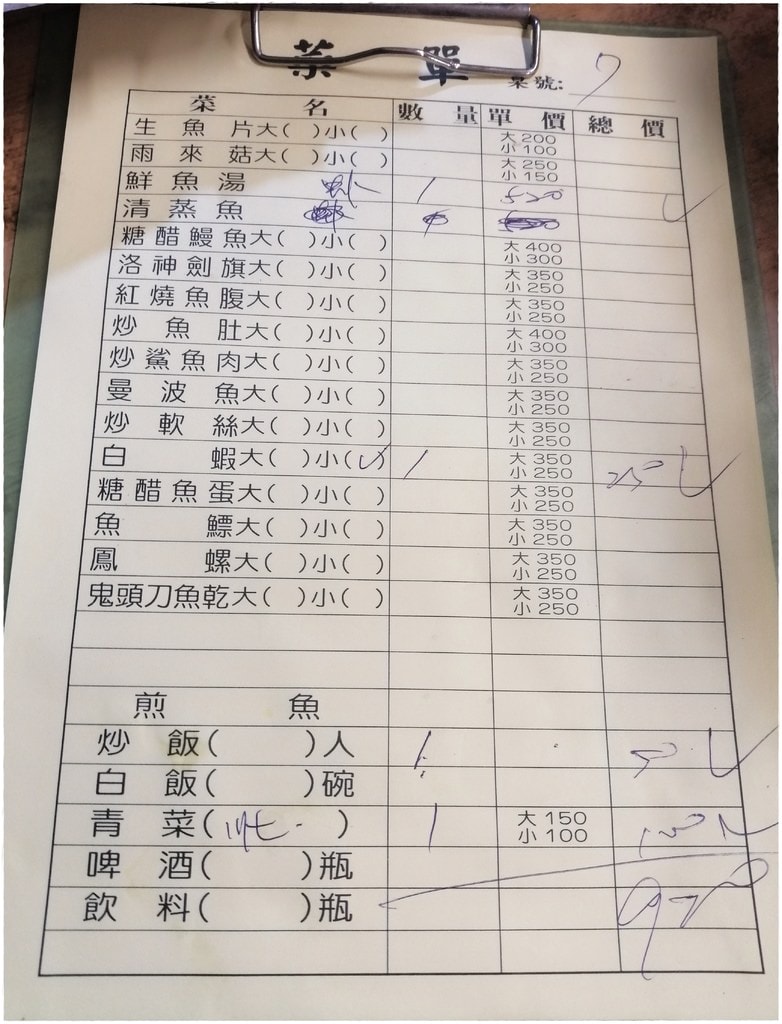 菜單
桌號: 7
菜名 數量 單價 總價
生魚片大( )小( ) 大200 小100
雨來菇大( )小( ) 大250 小150
鮮魚湯 1 520
清蒸魚
糖醋鰻魚大( )小( ) 大400 小300
洛神劍旗大( )小( ) 大350 小250
紅燒魚腹大( )小( ) 大350 小250
炒魚肚大( )小( ) 大400 小300
炒鯊魚肉大( )小( ) 大350 小250
曼波魚大( )小( ) 大350 小250
炒軟絲大( )小( ) 大350 小250
白蝦大( )小(✓) 1 大350 小250 250
糖醋魚蛋大( )小( ) 大350 小250
魚鰾大( )小( ) 大350 小250
鳳螺大( )小( ) 大350 小250
鬼頭刀魚乾大( )小( ) 大350 小250
煎魚
炒飯( )人 1 50
白飯( )碗
青菜( ) 1 大150 小100 150
啤酒( )瓶
飲料( )瓶
970